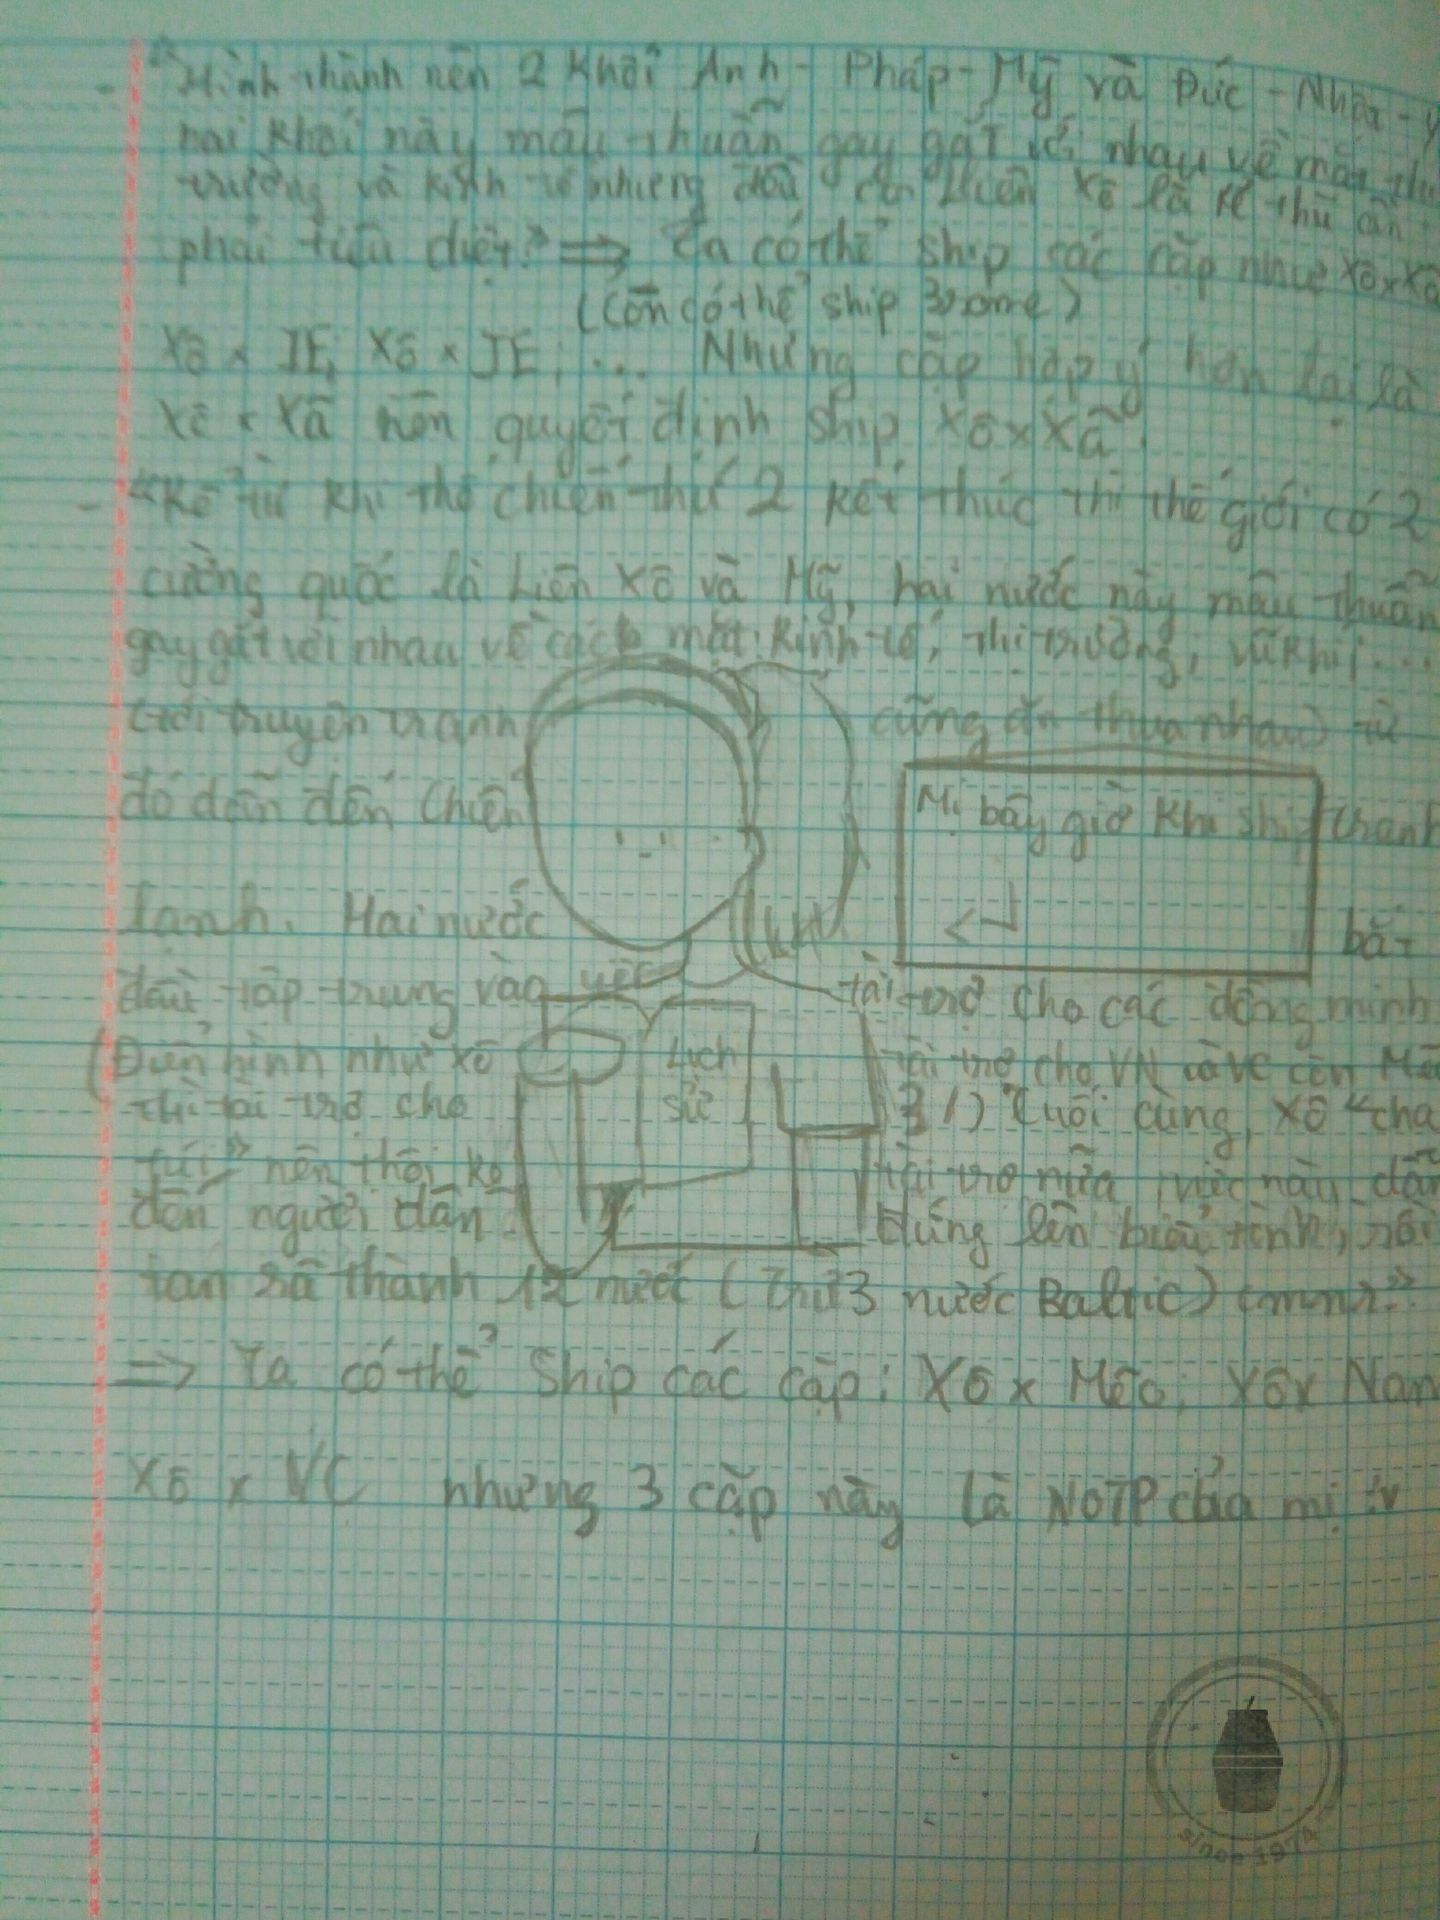 - "Hình thành nên 2 khối Anh - Pháp - Mỹ và Đức - Nhật - Ý
hai khối này mâu thuẫn gay gắt với nhau về mặt thị
trường và kinh tế nhưng đều coi Liên Xô là kẻ thù cần
phải tiêu diệt." => Ta có thể ship các cặp như Xô x Xã
(Còn có thể ship 3some)
Xô x IE, Xô x JE,... Nhưng cặp hợp ý hơn lại là
Xô x Xã nên quyết định ship Xô x Xã.
- "Kể từ khi thế chiến thứ 2 kết thúc thì thế giới có 2
cường quốc là Liên Xô và Mỹ, hai nước này mâu thuẫn
gay gắt với nhau về các mặt: Kinh tế, thị trường, vũ khí,...
(tới truyện tranh cũng ăn thua nhau) từ
đó dẫn đến Chiến tranh
Mị bây giờ khi ship
lạnh. Hai nước bắt
đầu tập trung vào việc tài trợ cho các đồng minh
(Điển hình như Xô tài trợ cho VN và VC còn Mẽo
thì tài trợ cho 3/) Cuối cùng, Xô "cháy
túi" nên thôi ko tài trợ nữa, việc này dẫn
đến người dân đứng lên biểu tình, rồi
tan rã thành 12 nước (trừ 3 nước Baltic)
=> Ta có thể ship các cặp: Xô x Mẽo, Xô x Nam
Xô x VC nhưng 3 cặp này là NOTP của mị :v
Lịch
sử
since 1974